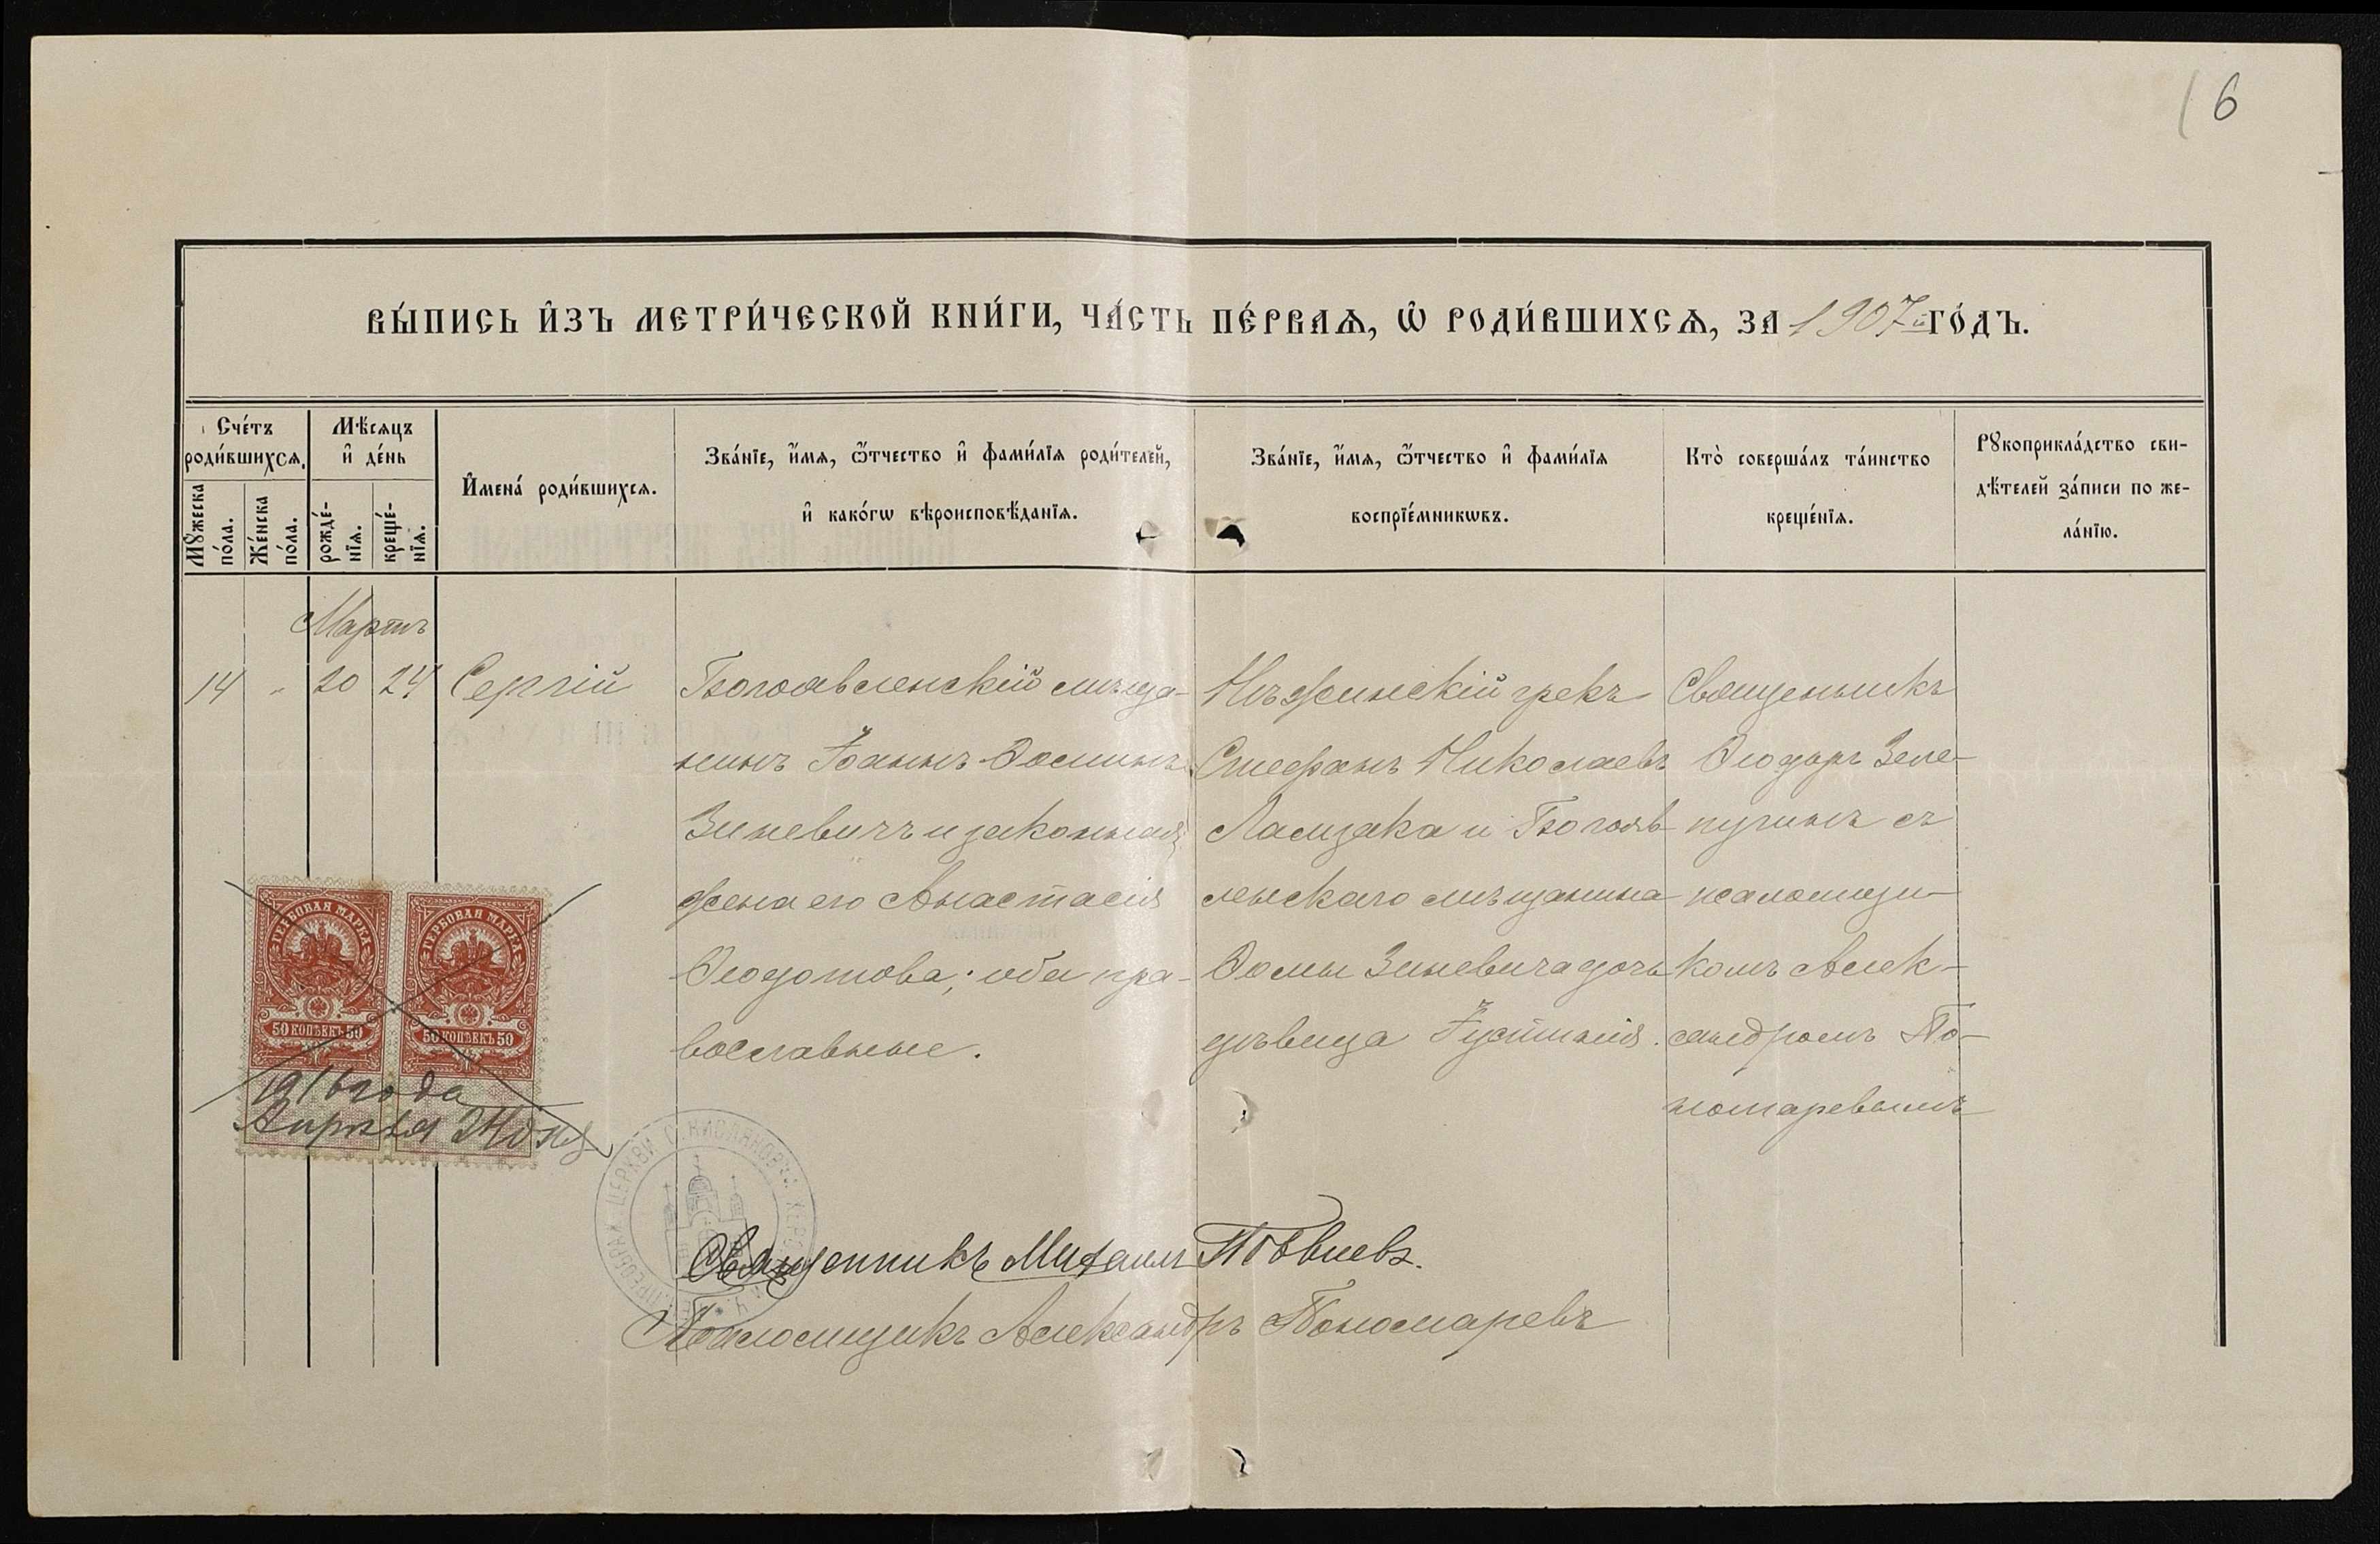 6
ВЫ́ПИСЬ И҆ЗЪ МЕТРИ́ЧЕСКОЙ КНИ́ГИ, ЧА́СТЬ ПЕ́РВАѦ, Ѡ҆ РОДИ́ВШИХСѦ, ЗА 1907 й ГО́ДЪ.
Сче́тъ
роди́вшихсѧ.
Мꙋ́жеска
по́ла.
Же́нска
по́ла.
Мѣ́сѧцъ
и҆ де́нь
рожде́-
нїѧ.
креще́-
нїѧ.
И҆мена́ роди́вшихсѧ.
Зва́нїе, и҆́мѧ, ѻ҆́тчество и҆ фами́лїѧ роди́телей,
и҆ како́гѡ вѣроисповѣ́данїѧ.
Зва́нїе, и҆́мѧ, ѻ҆́тчество и҆ фами́лїѧ
воспрїе́мникѡвъ.
Кто̀ соверша́лъ та́инство
креще́нїѧ.
Рꙋкоприкла́дство сви-
дѣ́телей за́писи по же-
ла́нїю.
Мартъ
14 „ 20 24 Сергій
Богоявленскій мѣща-
нинъ Іоаннъ Ѳоминъ
Зиневичъ и законная
жена его Анастасія
Ѳеодотова; оба пра-
вославные.
Нѣжинскій грекъ
Стефанъ Николаевъ
и Богояв
ленскаго мѣщанина
Ѳомы Зиневича дочь
дѣвица Іустинія.
Священникъ
Ѳеодоръ Зеле-
пугинъ съ
псаломщи-
комъ Алек-
сандромъ По-
номаревымъ
ГЕРБОВАЯ МАРКА
50 КОПѢЕКЪ 50
ГЕРБОВАЯ МАРКА
50 КОПѢЕКЪ 50
1916 года
Апрѣля 24 дня
Священникъ Михаилъ
Псаломщикъ Александръ Пономаревъ